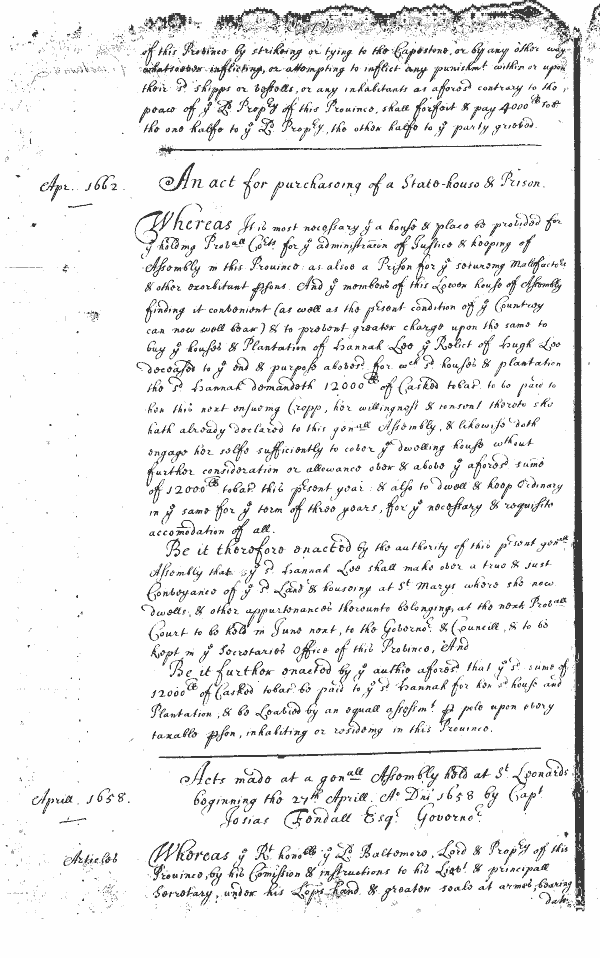 of this Province by strikeing or tying to the Capestone, or by any other way
whatsoever inflicting, or attempting to inflict any punishmt within or upon
their sd shipps or vessells, or any inhabitants as aforesd contrary to the
peace of ye Ld Propry of this Province, shall forfeit & pay 4000lb tob:
the one halfe to ye Ld Propry, the other halfe to ye party grieved.
Apr. 1662.
An act for purchaseing of a State-house & Prison.
Whereas Itt is most necessary yt a house & place be provided for
ye holding Provall Corts for ye administration of Justice & keeping of
Assembly in this Province: as alsoe a Prison for ye secureing Mallefactors
& other exorbitant psons. And ye members of this Lower house of Assembly
finding it convenient (as well as the psent condition of ye Country
can now well bear) & to prevent greater charge upon the same to
buy ye houses & Plantation of Hannah Lee ye Relict of Hugh Lee
deceased to ye end & purpose abovesd. for wch sd houses & plantation
the sd Hannah demandeth 12000lb of Casked tobac. to be paid to
her this next ensueing Cropp, her willingness & consent thereto she
hath already declared to this genall Assembly, & likewise doth
engage her selfe sufficiently to cover ye dwelling house without
further consideration or allowance over & above ye aforesd sume
of 12000lb tobac. this psent year: & also to dwell & keep Ordinary
in ye same for ye term of three years, for ye necessary & requisite
accomodation of all.
Be it therefore enacted by the authority of this psent genall
Assembly that ye sd Hannah Lee shall make over a true & just
Conveyance of ye sd Land & houseing at St Marys where she now
dwells, & other appurtenances thereunto belonging, at the next Provall
Court to be held in June next, to the Governor. & Councill, & to be
kept in ye Secretaries Office of this Province, And
Be it further enacted by ye authie aforesd that ye sd sume of
12000lb of Casked tobac. be paid to ye sd Hannah for her sd house and
Plantation, & be Leavied by an equall assesmt. p pole upon every
taxable pson, inhabiting or resideing in this Province.
Aprill. 1658.
Acts made at a genall Assembly held at St. Leonards
beginning the 27th Aprill. Ao Dni 1658 by Capt.
Josias Fendall Esqr. Governor.
Articles
Whereas ye Rt honoble ye Ld Baltemore, Lord & Propry of this
Province, by his Comission & instructions to his Lieut. & principall
Secretary, under his Lopps hand & greater seale at armes, bearing
date